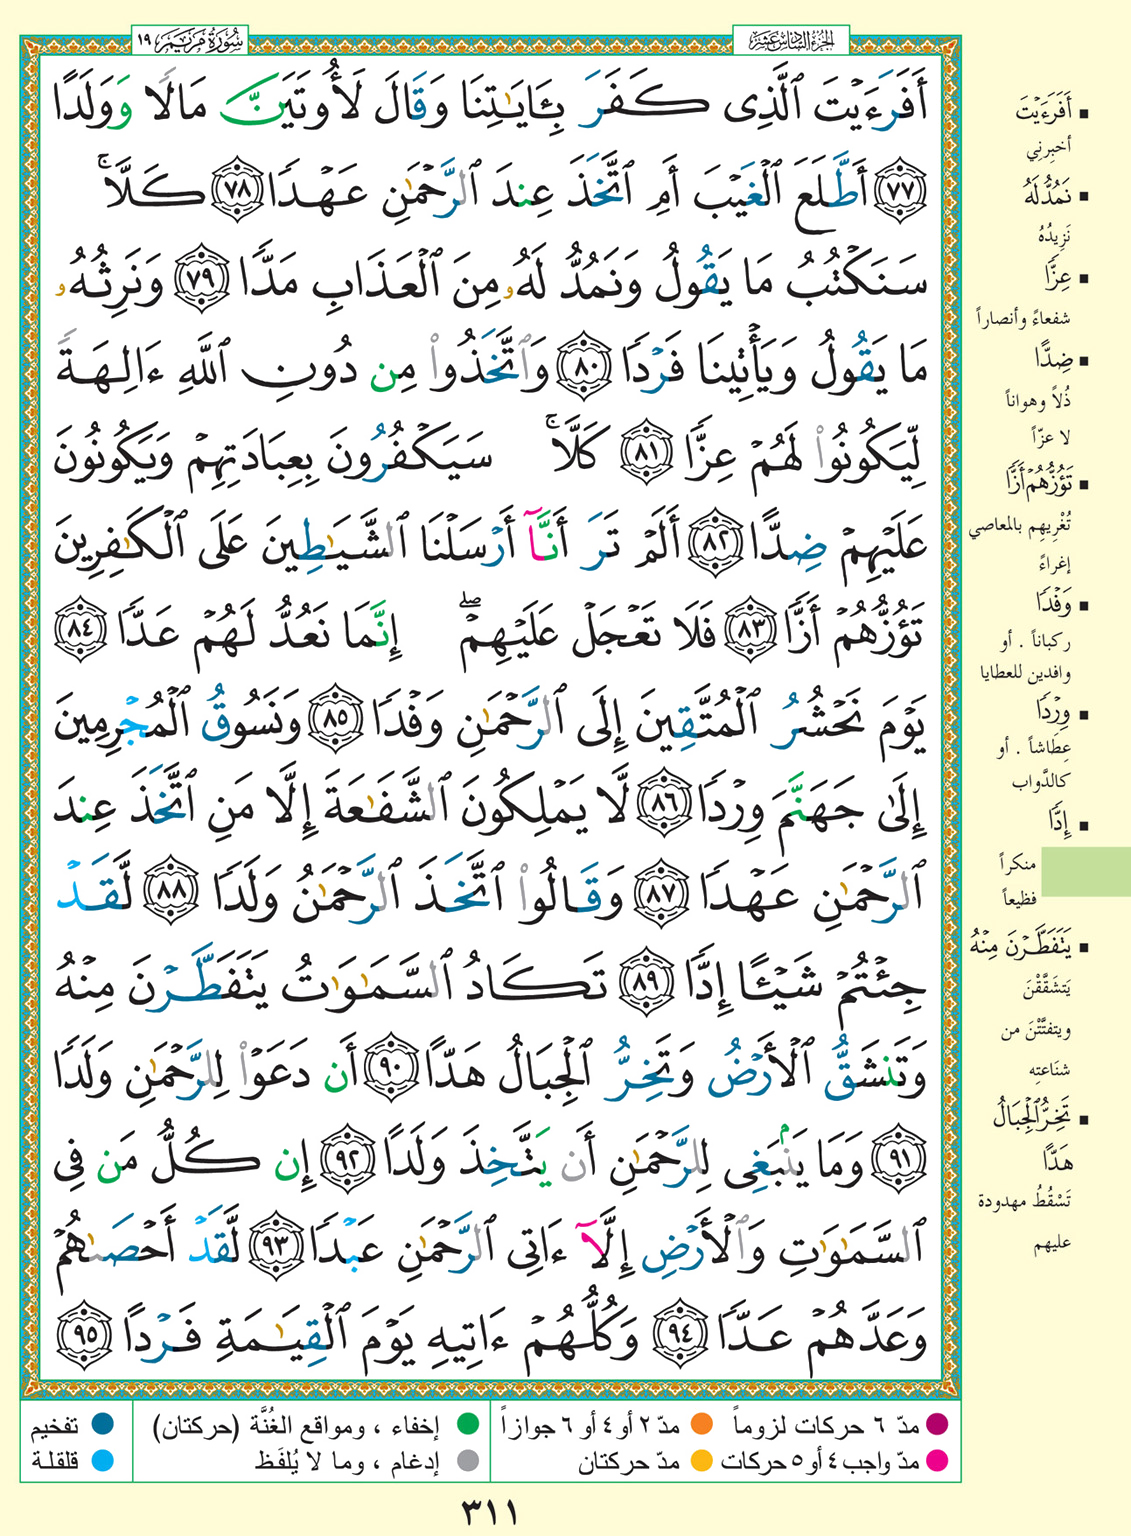 الجزء السادس عشر
سورة مريم ١٩
أَفَرَءَيْتَ ٱلَّذِى كَفَرَ بِـَٔايَـٰتِنَا وَقَالَ لَأُوتَيَنَّ مَالًا وَوَلَدًا
٧٧ أَطَّلَعَ ٱلْغَيْبَ أَمِ ٱتَّخَذَ عِندَ ٱلرَّحْمَـٰنِ عَهْدًا ٧٨ كَلَّا ۚ
سَنَكْتُبُ مَا يَقُولُ وَنَمُدُّ لَهُۥ مِنَ ٱلْعَذَابِ مَدًّا ٧٩ وَنَرِثُهُۥ
مَا يَقُولُ وَيَأْتِينَا فَرْدًا ٨٠ وَٱتَّخَذُوا۟ مِن دُونِ ٱللَّهِ ءَالِهَةً
لِّيَكُونُوا۟ لَهُمْ عِزًّا ٨١ كَلَّا ۚ سَيَكْفُرُونَ بِعِبَادَتِهِمْ وَيَكُونُونَ
عَلَيْهِمْ ضِدًّا ٨٢ أَلَمْ تَرَ أَنَّآ أَرْسَلْنَا ٱلشَّيَـٰطِينَ عَلَى ٱلْكَـٰفِرِينَ
تَؤُزُّهُمْ أَزًّا ٨٣ فَلَا تَعْجَلْ عَلَيْهِمْ ۖ إِنَّمَا نَعُدُّ لَهُمْ عَدًّا ٨٤
يَوْمَ نَحْشُرُ ٱلْمُتَّقِينَ إِلَى ٱلرَّحْمَـٰنِ وَفْدًا ٨٥ وَنَسُوقُ ٱلْمُجْرِمِينَ
إِلَىٰ جَهَنَّمَ وِرْدًا ٨٦ لَّا يَمْلِكُونَ ٱلشَّفَـٰعَةَ إِلَّا مَنِ ٱتَّخَذَ عِندَ
ٱلرَّحْمَـٰنِ عَهْدًا ٨٧ وَقَالُوا۟ ٱتَّخَذَ ٱلرَّحْمَـٰنُ وَلَدًا ٨٨ لَّقَدْ
جِئْتُمْ شَيْـًٔا إِدًّا ٨٩ تَكَادُ ٱلسَّمَـٰوَٰتُ يَتَفَطَّرْنَ مِنْهُ
وَتَنشَقُّ ٱلْأَرْضُ وَتَخِرُّ ٱلْجِبَالُ هَدًّا ٩٠ أَن دَعَوْا۟ لِلرَّحْمَـٰنِ وَلَدًا
٩١ وَمَا يَنۢبَغِى لِلرَّحْمَـٰنِ أَن يَتَّخِذَ وَلَدًا ٩٢ إِن كُلُّ مَن فِى
ٱلسَّمَـٰوَٰتِ وَٱلْأَرْضِ إِلَّآ ءَاتِى ٱلرَّحْمَـٰنِ عَبْدًا ٩٣ لَّقَدْ أَحْصَىٰهُمْ
وَعَدَّهُمْ عَدًّا ٩٤ وَكُلُّهُمْ ءَاتِيهِ يَوْمَ ٱلْقِيَـٰمَةِ فَرْدًا ٩٥
أَفَرَءَيْتَ
أخبِرني
نَمُدُّ لَهُ
نَزِيدُهُ
عِزًّا
شفعاءً وأنصاراً
ضِدًّا
ذُلاً وهواناً
لا عزّاً
تَؤُزُّهُمْ أَزًّا
تُغْرِيهم بالمعاصي
إغراءً
وَفْدًا
ركباناً . أو
وافدين للعطايا
وِرْدًا
عِطاشاً . أو
كالدَّواب
إِدًّا
منكراً
فظيعاً
يَتَفَطَّرْنَ مِنْهُ
يَتشقَّقْنَ
ويتفتَّتْنَ من
شنَاعتِه
تَخِرُّ ٱلْجِبَالُ
هَدًّا
تَسْقُطُ مهدودة
عليهم
مدّ ٦ حركات لزوماً
مدّ ٢ أو ٤ أو ٦ جوازاً
إخفاء ، ومواقع الغُنَّة (حركتان)
تفخيم
مدّ واجب ٤ أو ٥ حركات
مدّ حركتان
إدغام ، وما لا يُلفَظ
قلقلة
٣١١